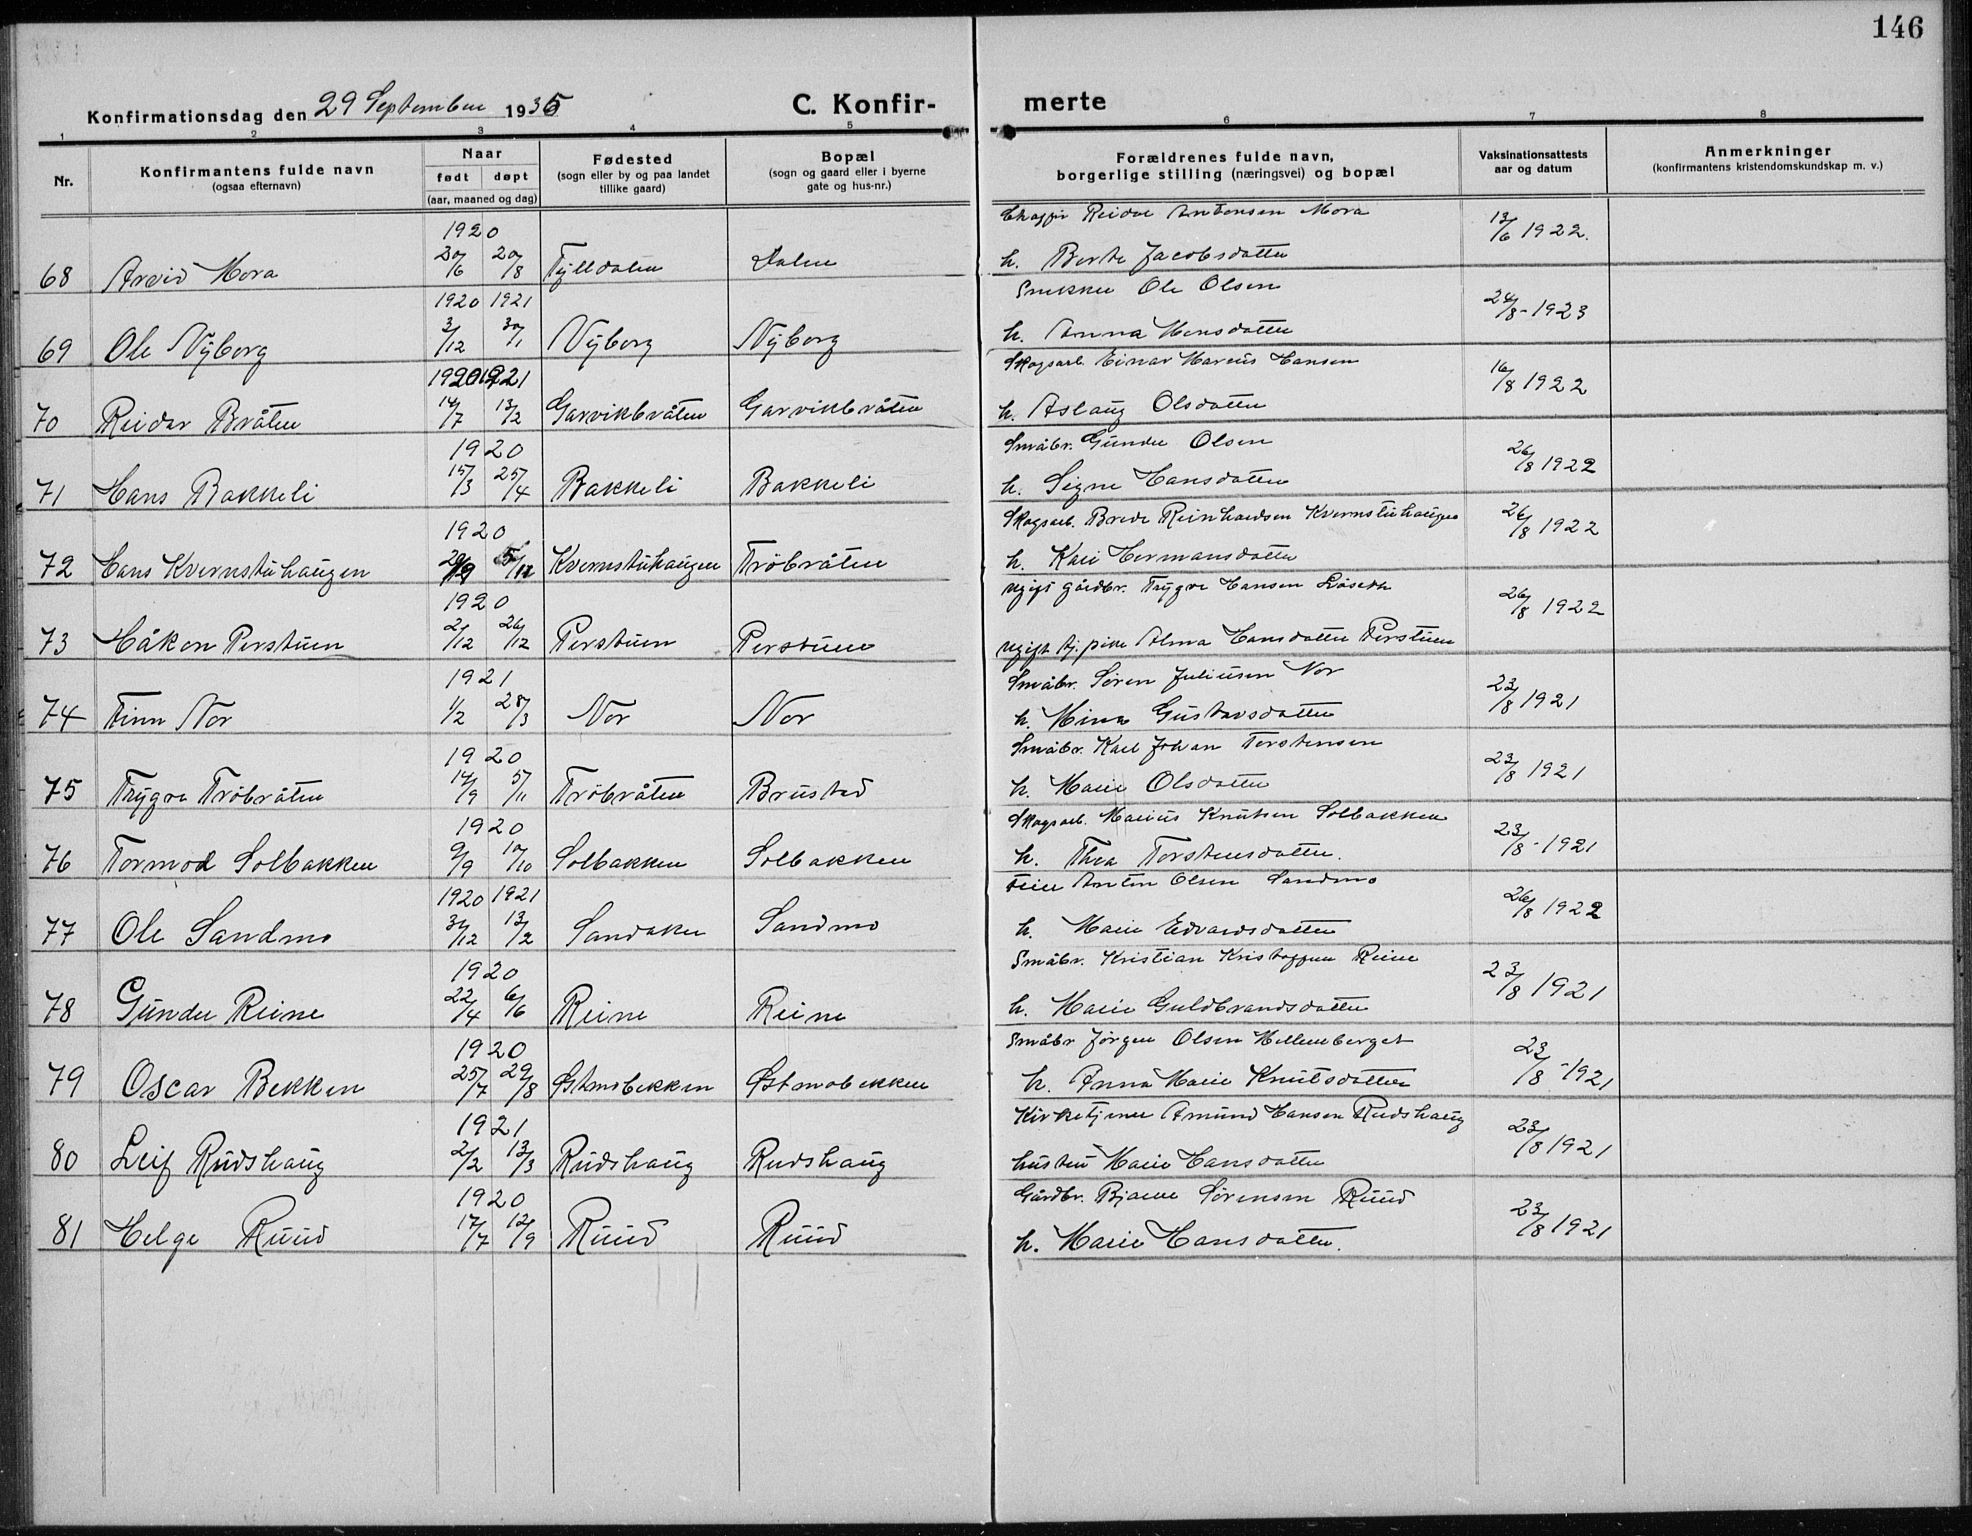 146
Konfirmationsdag den 29 September 1935 C. Konfir- merte
1 2 3 4 5 6 7 8
Nr. Konfirmantens fulde navn (ogsaa efternavn) Naar født døpt (aar, maaned og dag) Fødested (sogn eller by og paa landet tillike gaard) Bopæl (sogn og gaard eller i byerne gate og hus-nr.) Forældrenes fulde navn, borgerlige stilling (næringsvei) og bopæl Vaksinationsattests aar og datum Anmerkninger (konfirmantens kristendomskundskap m. v.)
1920 Reidar Antonsen Mora
68 Arvid Mora 20/6 20/8 Tylldalen Dalen h. Berte Jacobsdatter 13/6 1922.
1920 1921 Snekker Ole Olsen
69 Ole Nyborg 3/12 30/1 Nyborg Nyborg h. Anna Hansdatter 24/8-1923
1920 1921 Skogsarb. Einar Marius Hansen
70 Reidar Bråten 14/7 13/2 Garvikbråten Garvikbråten h. Aslaug Olsdatter 16/8 1922
1920 Småbr. Gunder Olsen
71 Hans Bakkeli 15/3 25/4 Bakkeli Bakkeli h. Signe Hansdatter 26/8 1922
1920 Skogsarb. Brede Reinhardsen Kvernstuhaugen
72 Hans Kvernstuhaugen Kvernstuhaugen Trøbråten h. Kari Hermansdatter 26/8 1922
1920 ugift gårdbr. Trygve Hansen Løseth
73 Håkon Perstuen 2/12 26/12 Perstuen Perstuen ugift tj. pike Alma Hansdatter Perstuen 26/8 1922
1921 Småbr. Søren Juliusen Nor
74 Finn Nor 1/2 28/3 Nor Nor h. Mina Gustavsdatter 23/8 1921
1920 Småbr. Karl Johan Torstensen
75 Trygve Trøbråten 14/9 5/11 Trøbråten Brustad h. Marie Olsdatter 23/8 1921
1920 Skogsarb. Marius Knutsen Solbakken
76 Tormod Solbakken 9/9 10/10 Solbakken Solbakken h. Thea Torstensdatter. 23/8-1921
1920 1921 Feier Anton Olsen Sandmo
77 Ole Sandmo 31/12 13/2 Sandaker Sandmo h. Marie Edvardsdatter 26/8 1922
1920 Småbr. Kristian Kristoffersen Reine
78 Gunder Reine 22/4 6/6 Reine Reine h. Marie Guldbrandsdatter 23/8 1921
1920 Småbr Jørgen Olsen Mellemberget
79 Oscar Bekken 25/7 29/8 Østmobekken Østmobekken h. Anna Marie Knutsdatter 23/8-1921
1921 Kirketjener Amund Hansen Rudshaug
80 Leif Rudshaug 2/2 13/3 Rudshaug Rudshaug hustru Marie Hansdatter 23/8 1921
1920 Gårdbr. Bjarne Sørensen Ruud
81 Helge Ruud 17/7 12/9 Ruud Ruud h. Marie Hansdatter. 23/8 1921